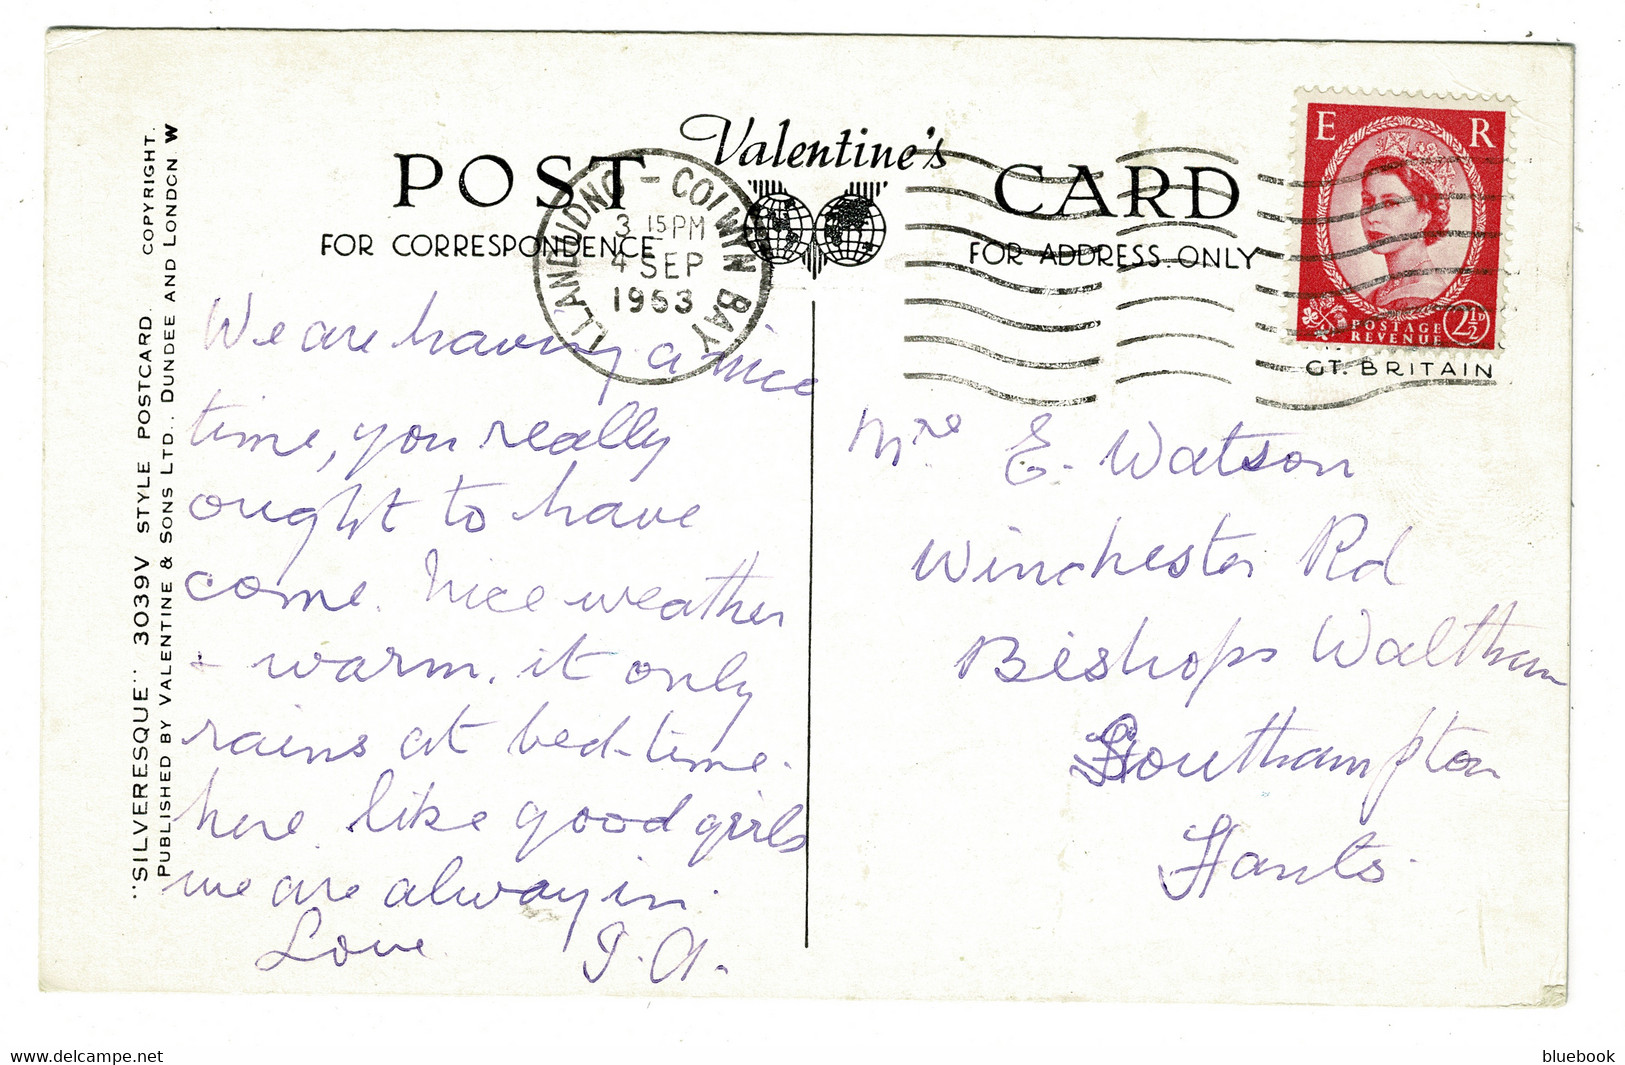 "SILVERESQUE" 3039V STYLE POSTCARD. COPYRIGHT.
PUBLISHED BY VALENTINE & SONS LTD., DUNDEE AND LONDON W
POST
Valentine's
CARD
FOR CORRESPONDENCE
FOR ADDRESS ONLY
LLANDUDNO - COLWYN BAY
3 15 PM
4 SEP
1953
E R
POSTAGE
REVENUE
2½D
GT. BRITAIN
We are having a nice
time, you really
ought to have
come. Nice weather
+ warm. it only
rains at bed-time.
here like good girls
we are alway in.
Love
Mrs E. Watson
Winchester Rd
Bishops Waltham
Southampton
Hants.
www.delcampe.net
bluebook